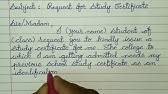 Subject : Request for Study Certificate
Sir/Madam,
I (your name) student of
(class) request you to kindly issue a
study certificate for me. The college to
which I am getting admitted needs my
previous school study certificate as an
identification